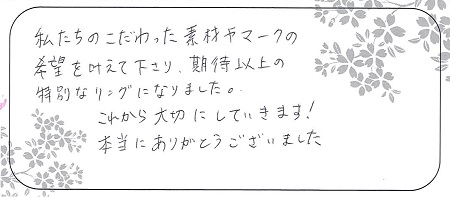 私たちのこだわった素材やマークの
希望を叶えて下さり、期待以上の
特別なリングになりました。
これから大切にしていきます!
本当にありがとうございました